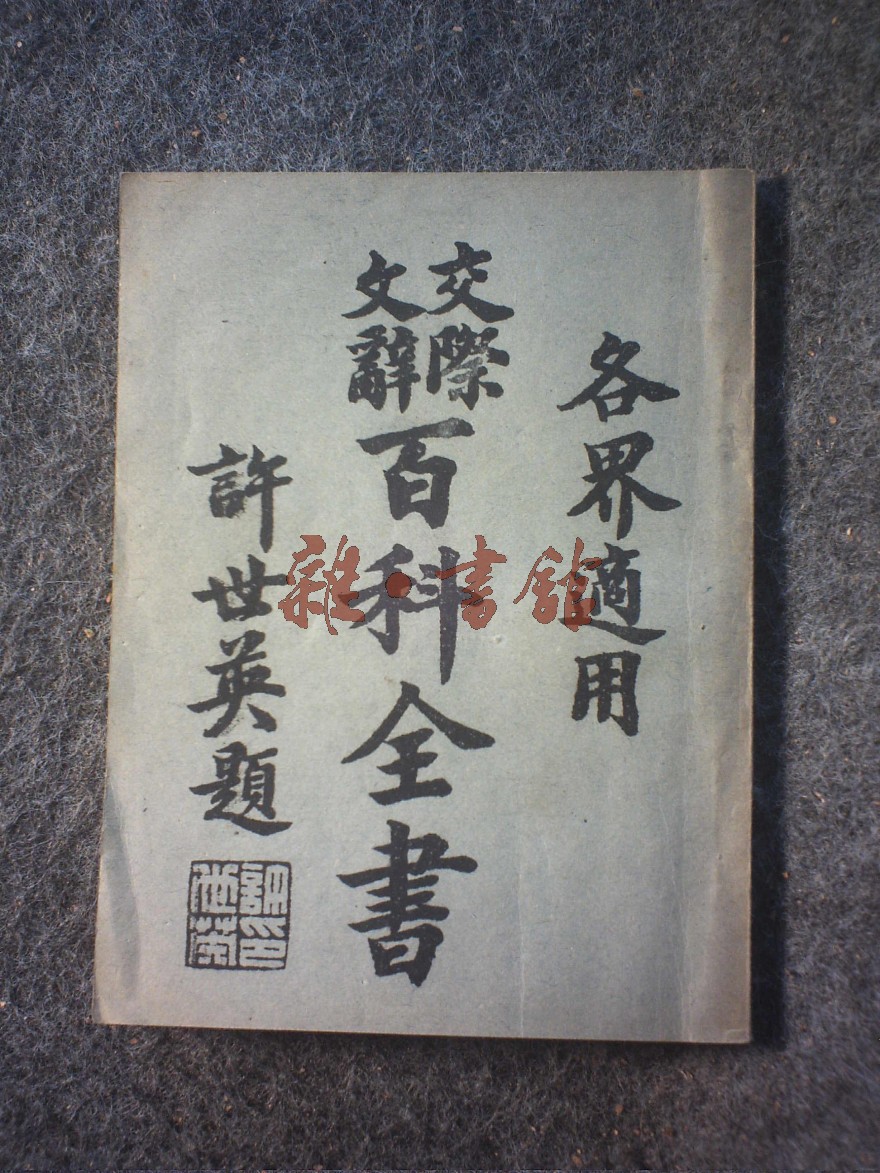 各界適用
交際文辭百科全書
許世英題
許世英印
雜·書館